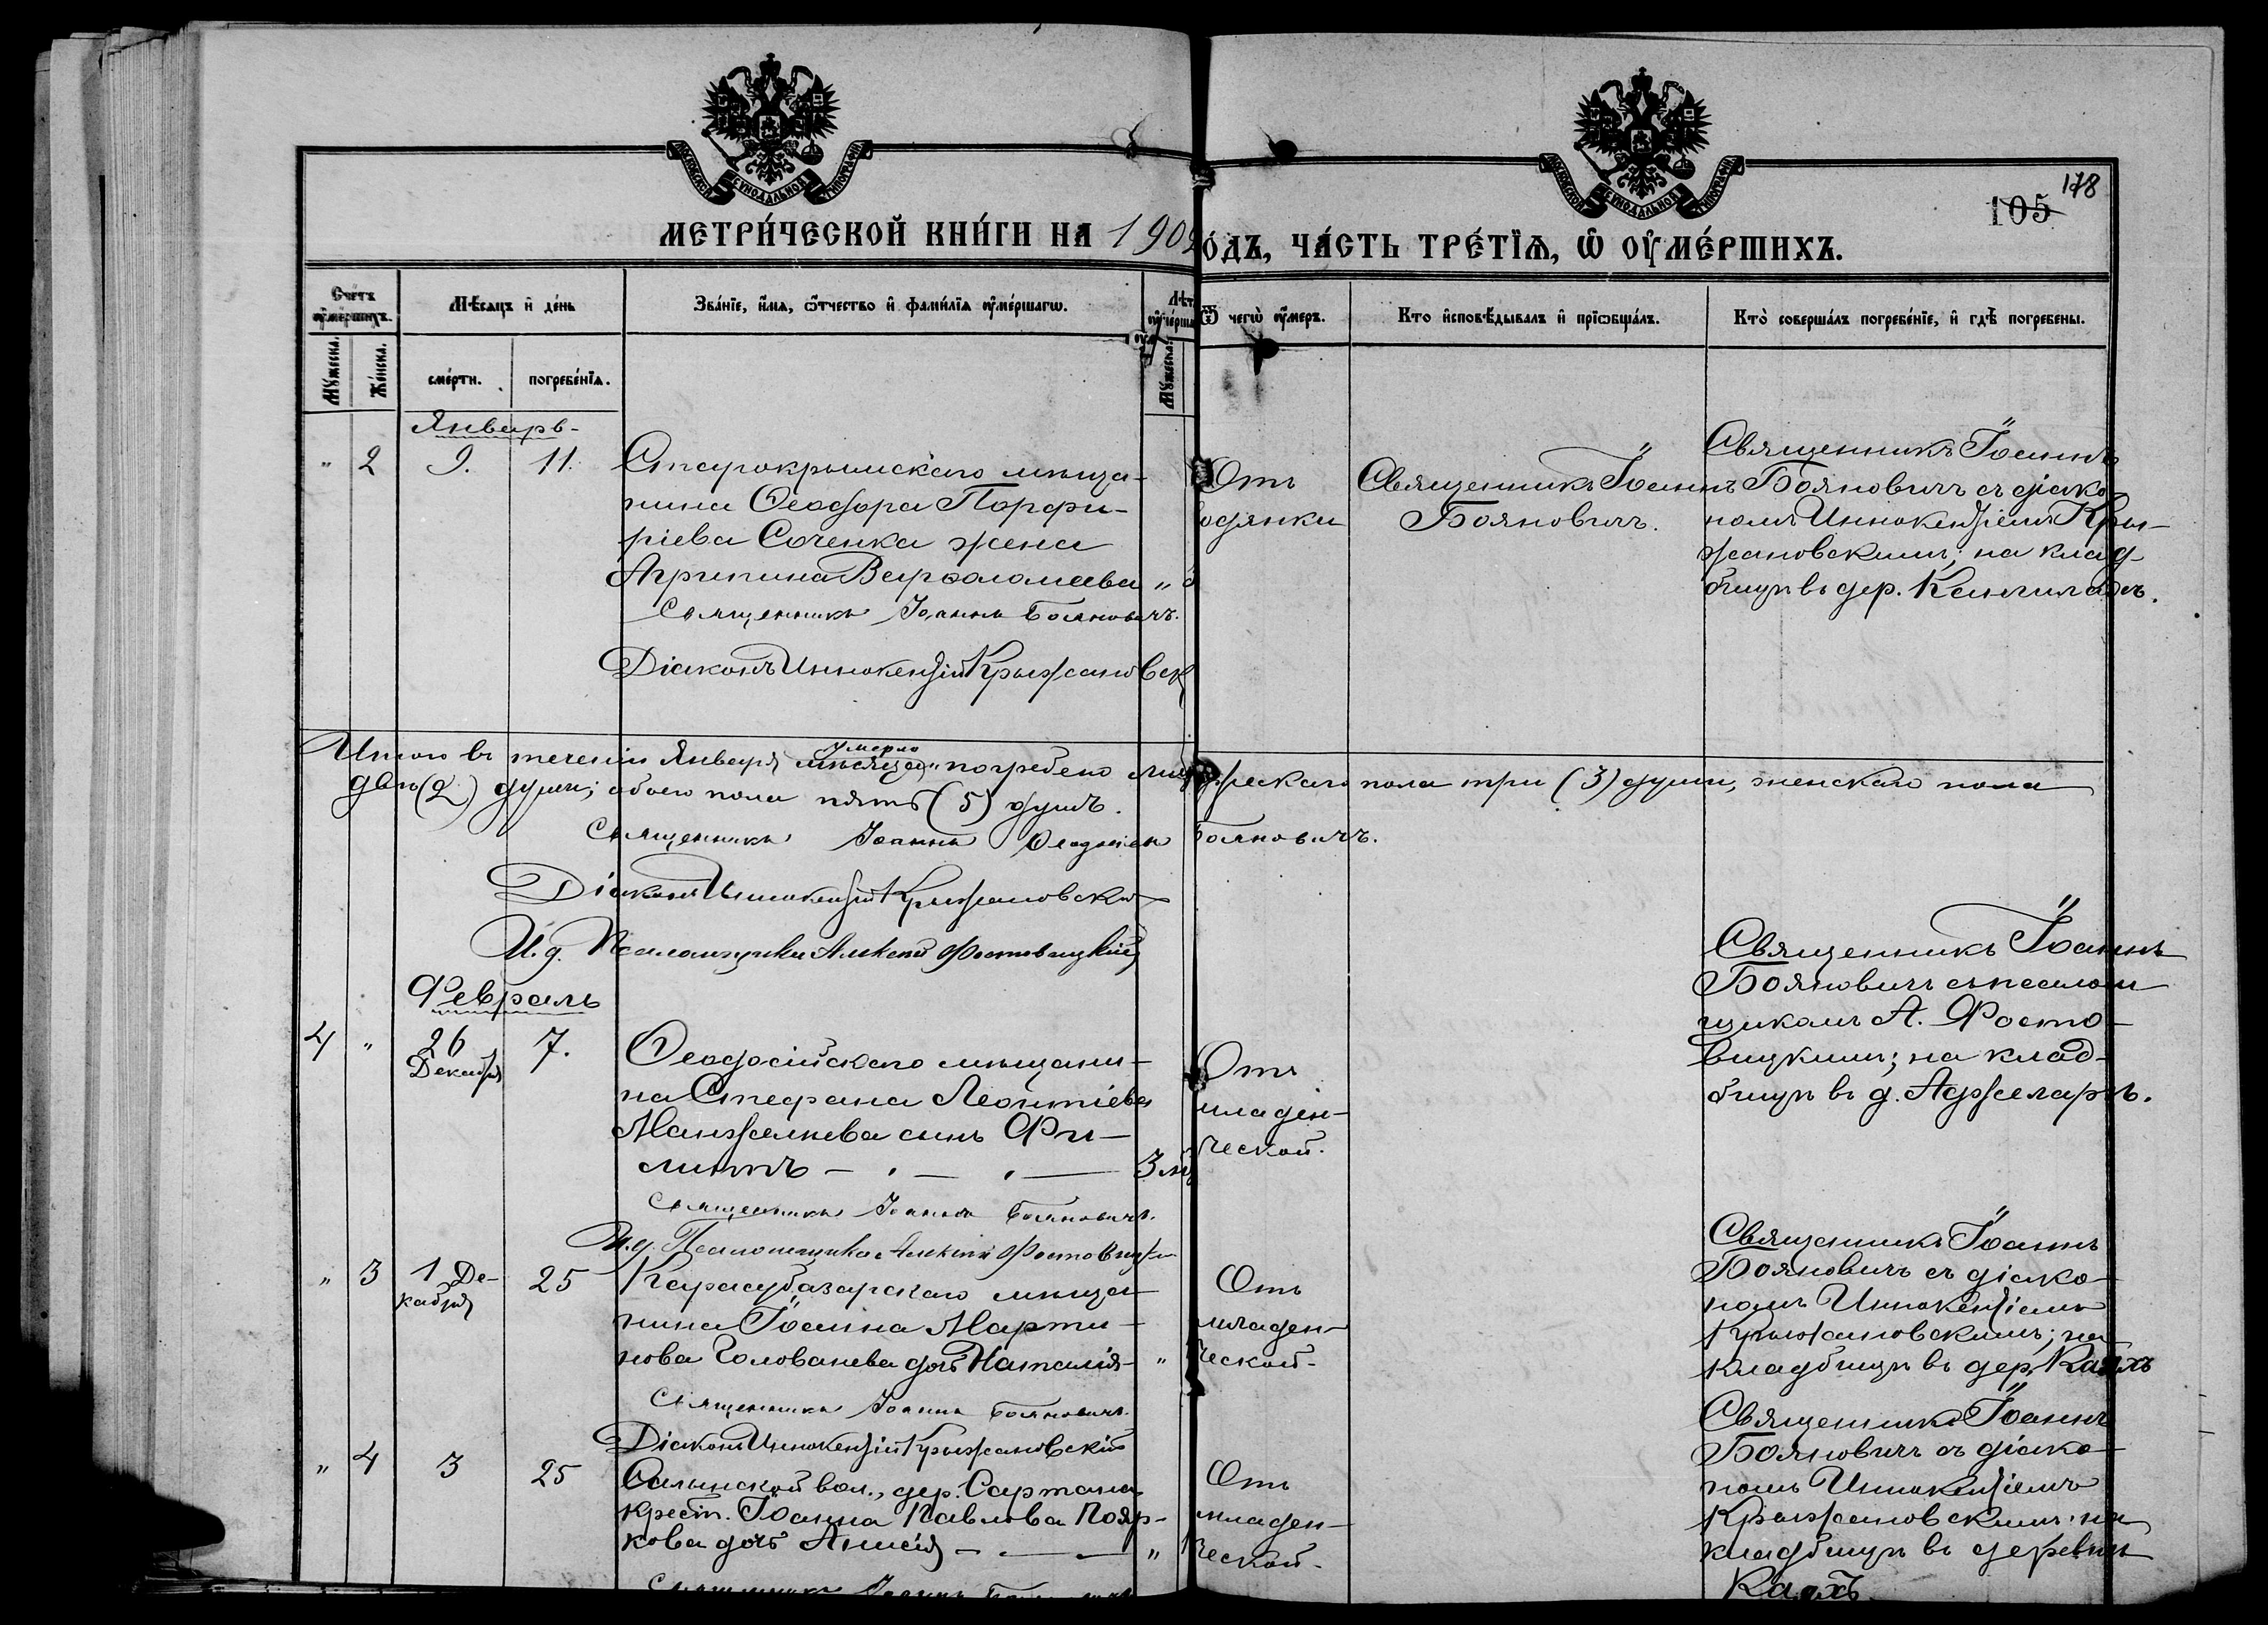 МОСКОВСКОЙ СѴНОДАЛЬНОЙ ТИПОГРАФІИ
МОСКОВСКОЙ СѴНОДАЛЬНОЙ ТИПОГРАФІИ
178
105
МЕТРИ́ЧЕСКОЙ КНИ́ГИ НА 1902
О́ДЪ, ЧА́СТЬ ТРЕ́ТІѦ, Ѡ ОУМЕ́РШИХЪ.
Сче́тъ оумершихъ.
Мѣсѧцъ и де́нь
Зва́нїе, и́мѧ, ѻ́тчество и фами́лїѧ оуме́ршагѡ.
Лѣт
Ѿ чегѡ̀ оу́меръ.
Кто исповѣ́дывалъ и прїѡбща́лъ.
Кто̀ соверша́лъ погребе́нїе, и гдѣ̀ погребены.
Мꙋ́жеска.
Же́нска.
сме́рти.
погребе́нїѧ.
Мꙋ́жеска.
Январь
" 2 9. 11.
Старокрымскаго мѣща-
нина Ѳеодора Порфи-
ріева Соченка жена
Агрипина Варѳоломеева "
Священникъ Іоаннъ Бояновичъ.
Діаконъ Иннокентій Крыжановск
Отъ
водянки
Священникъ Іоаннъ
Бояновичъ.
Священникъ Іоаннъ
Бояновичъ съ діако-
номъ Иннокентіемъ Кры-
жановскимъ; на клад-
бищѣ въ дер.
Итого въ теченіи Января мѣсяца умерло погребено мужескаго пола три (3) души, женскаго пола
двѣ (2) души; обоего пола пять (5) душъ.
Священникъ Іоаннъ Бояновичъ.
Діаконъ Иннокентій Крыжановскій
И. д. Псаломщика Алексій Фостовицкій
Февраль
4 " 26 Декабря 7.
Ѳеодосійскаго мѣщани-
на Стефана Леонтіева
сынъ Фи-
липпъ 3 мѣ
Священникъ Іоаннъ Бояновичъ.
И.д. Псаломщика Алексій Фостовицкій
Отъ
младен-
ческой.
Священникъ Іоаннъ
Бояновичъ съ псалом
щикомъ А. Фосто-
вицкимъ; на клад-
бищѣ въ д. Аджеларъ.
" 3 1 Де-
кабря 25
Карасубазарскаго мѣща-
нина Іоанна Марти-
нова Голованева дочь Наталія "
Священникъ Іоаннъ Бояновичъ.
Діаконъ Иннокентій Крыжановскій
Отъ
младен-
ческой
Священникъ Іоаннъ
Бояновичъ съ діако-
номъ Иннокентіемъ
Крыжановскимъ; на
кладбищѣ въ дер.
" 4 3 25
Салынской вол., дер. Сартана
крест. Іоанна Павлова Пояр-
кова дочь Анисія "
Священникъ Іоаннъ
Отъ
младен-
ческой
Священникъ Іоаннъ
Бояновичъ съ діако-
номъ Иннокентіемъ
Крыжановскимъ; на
кладбищѣ въ деревнѣ